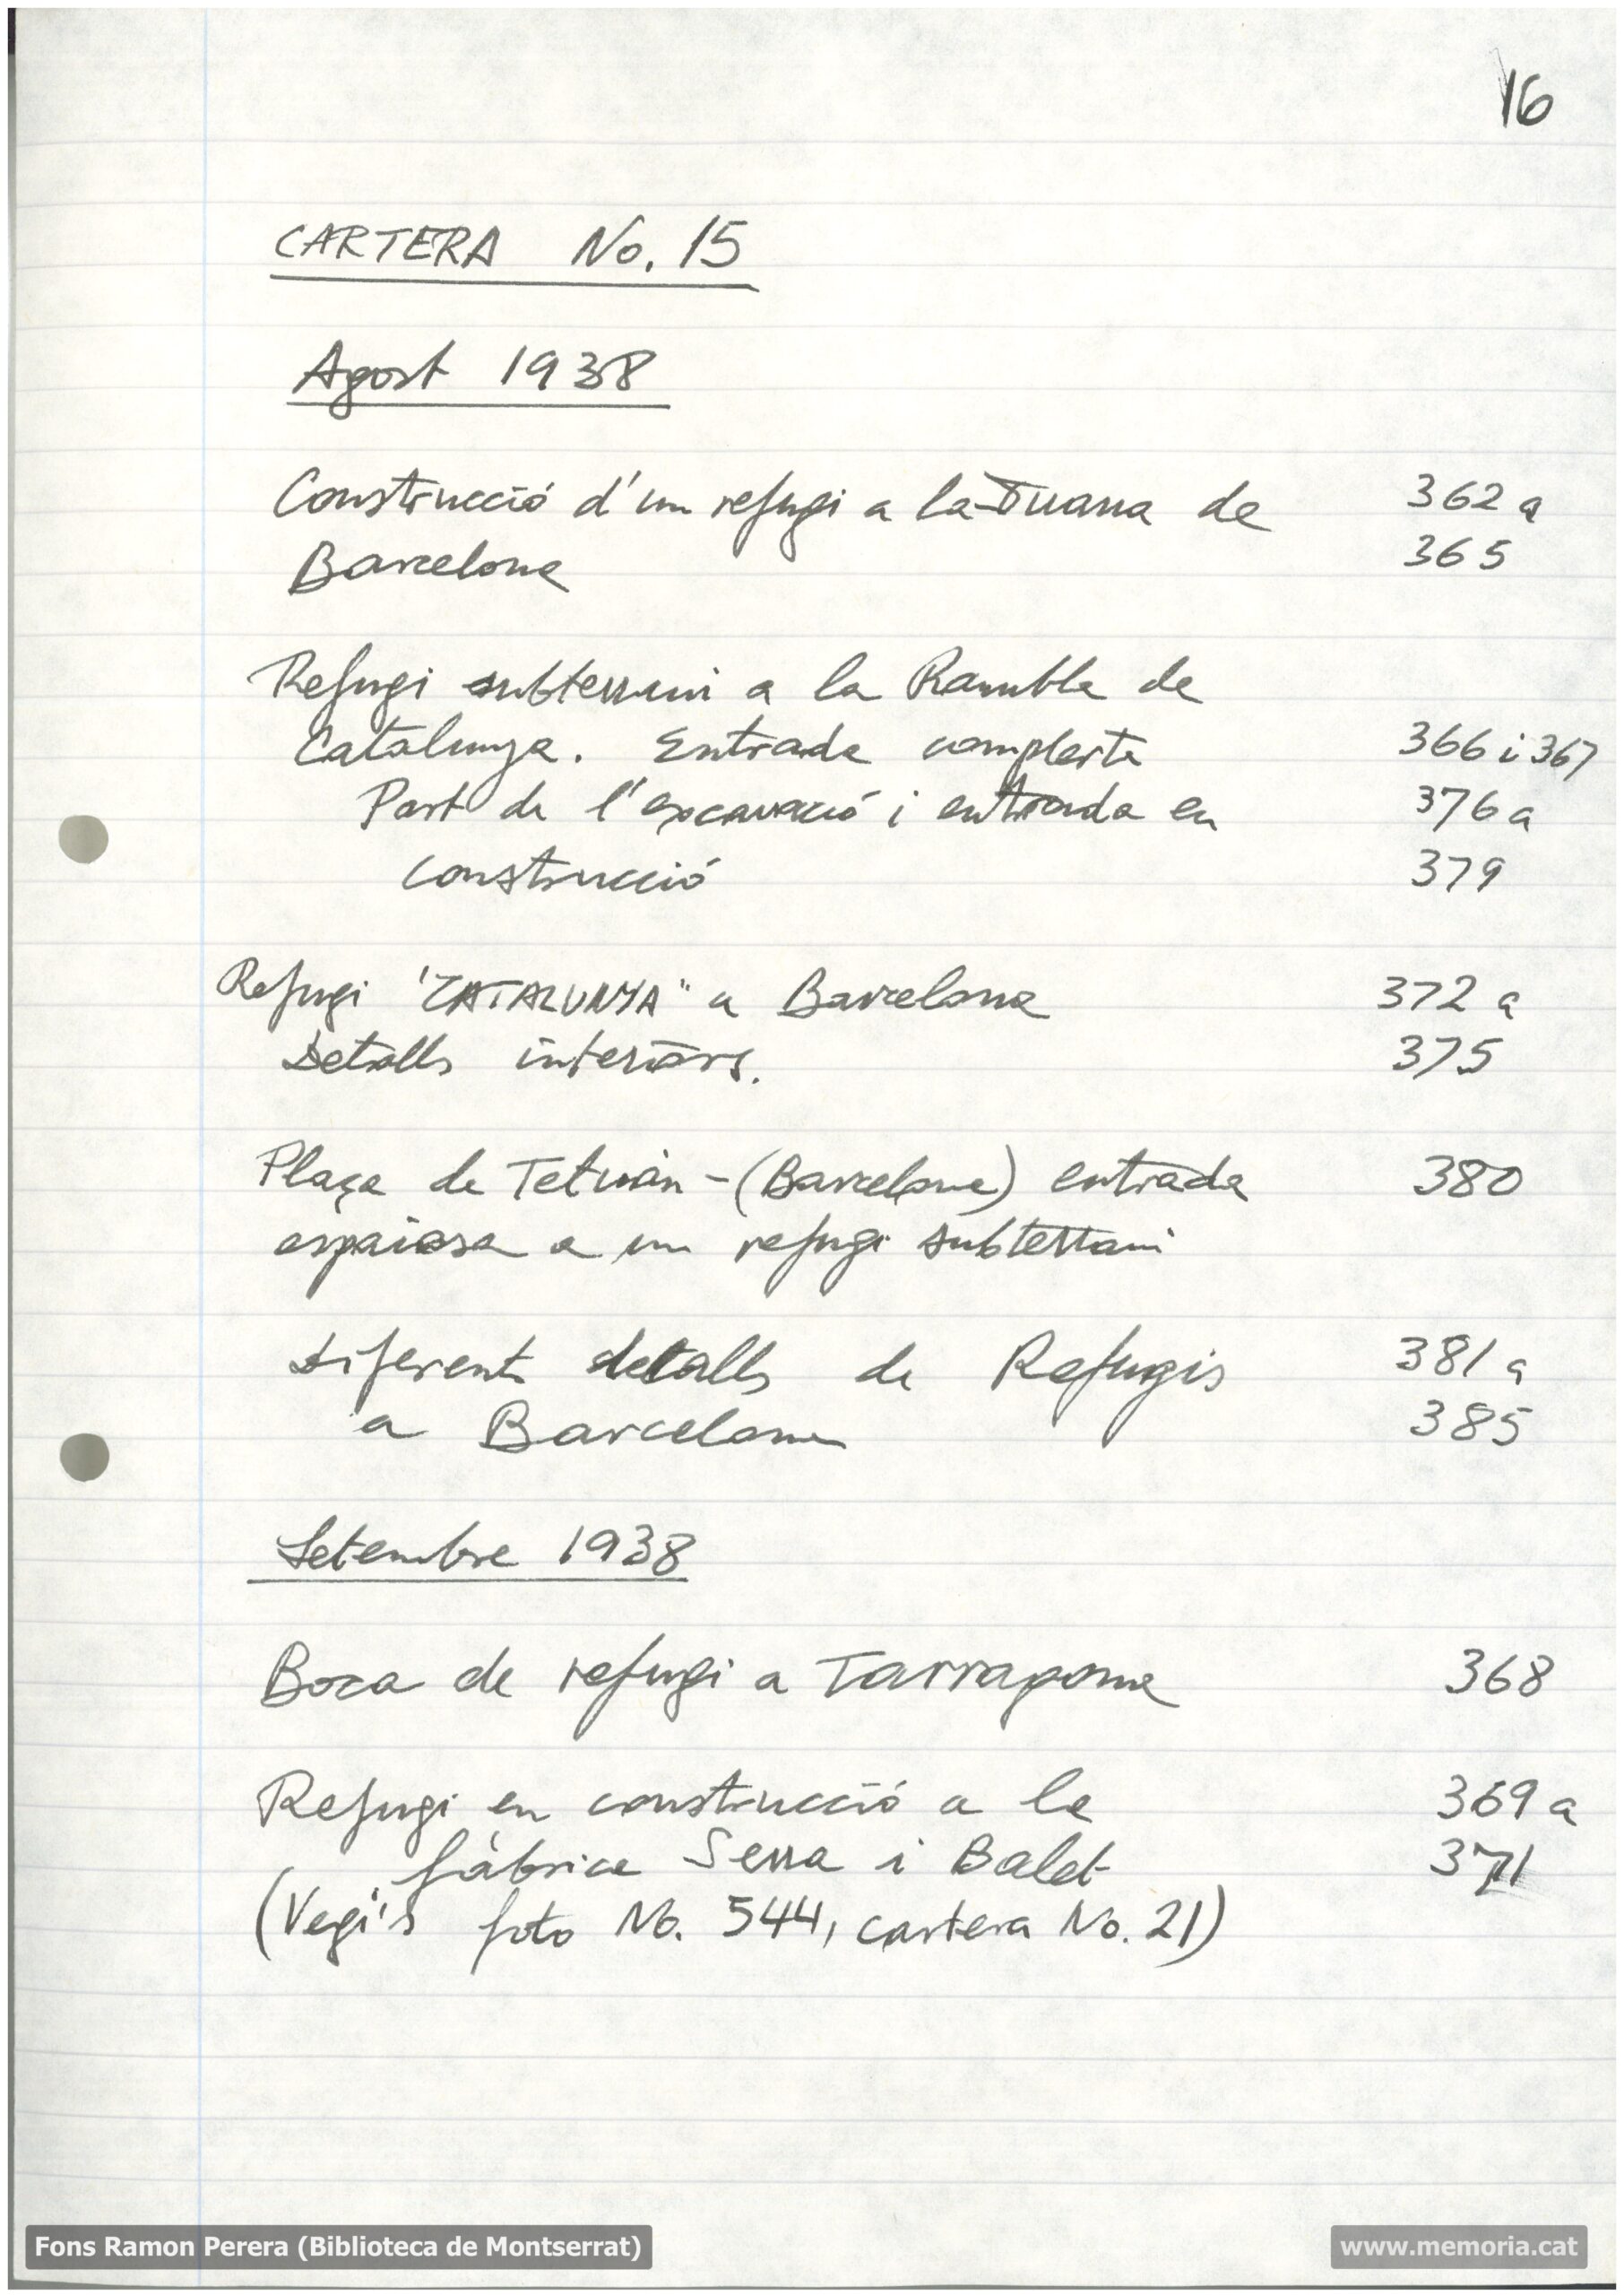 16
CARTERA No. 15
Agost 1938
Construcció d'un refugi a la Duana de 362 a
Barcelona 365
Refugi subterrani a la Rambla de
Catalunya. Entrada complerta 366 i 367
Part de l'excavació i entrada en 376 a
construcció 379
Refugi "CATALUNYA" a Barcelona 372 a
Detalls interiors. 375
Plaça de Tetuàn - (Barcelona) entrada 380
espaiosa a un refugi subterrani
Diferents detalls de Refugis 381 a
a Barcelona 385
Setembre 1938
Boca de refugi a Tarragona 368
Refugi en construcció a la 369 a
fàbrica Serra i Balet 371
(Vegi's foto No. 544, cartera No. 21)
Fons Ramon Perera (Biblioteca de Montserrat) www.memoria.cat